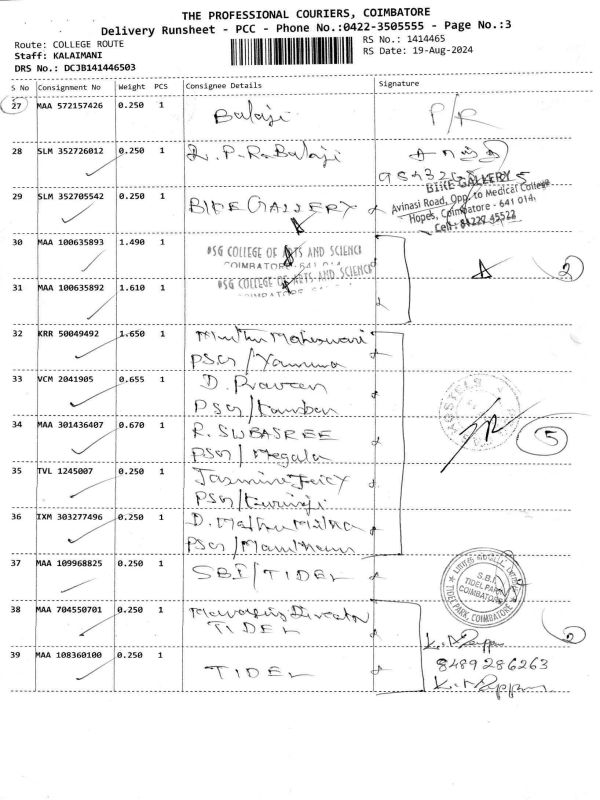 THE PROFESSIONAL COURIERS, COIMBATORE
Delivery Runsheet - PCC - Phone No.:0422-3505555 - Page No.:3
Route: COLLEGE ROUTE
RS No.: 1414465
Staff: KALAIMANI
RS Date: 19-Aug-2024
DRS No.: DCJB141446503
S No Consignment No Weight PCS Consignee Details Signature
27 MAA 572157426 0.250 1 Balaji P/R
28 SLM 352726012 0.250 1 P.R. Balaji
29 SLM 352705542 0.250 1 BIKE GALLERY
BIKE GALLERY
Avinasi Road, Opp. to Medical College
Hopes, Coimbatore - 641 014.
Cell:
30 MAA 100635893 1.490 1 PSG COLLEGE OF ARTS AND SCIENCE
COIMBATORE - 641 014
2
31 MAA 100635892 1.610 1 PSG COLLEGE OF ARTS AND SCIENCE
COIMBATORE
32 KRR 50049492 1.650 1 Muthu Maheswari
PSG/Yamuna
33 VCM 2041905 0.655 1 D. Praveen
PSG/Kamban
34 MAA 301436407 0.670 1 R. SUBASREE
PSG/Megala
5
35 TVL 1245007 0.250 1 Jasmine
PSG/Kurinji
36 IXM 303277496 0.250 1 D. Mathu
PSG/
37 MAA 109968825 0.250 1 SBI/TIDEL
S.B.I
TIDEL PARK
COIMBATORE
TIDEL PARK, COIMBATORE
38 MAA 704550701 0.250 1 Managing Director
TIDEL
2
39 MAA 108360100 0.250 1 TIDEL
8489286263